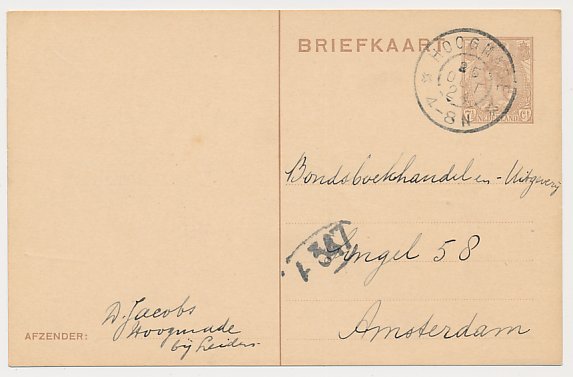 BRIEFKAART
HOOGMADE
4-8 N
7½ ct
NEDERLAND
Bondsboekhandel en Uitgeverij
Singel 58
Amsterdam
AFZENDER:
D. Jacobs
Hoogmade
bij Leiden